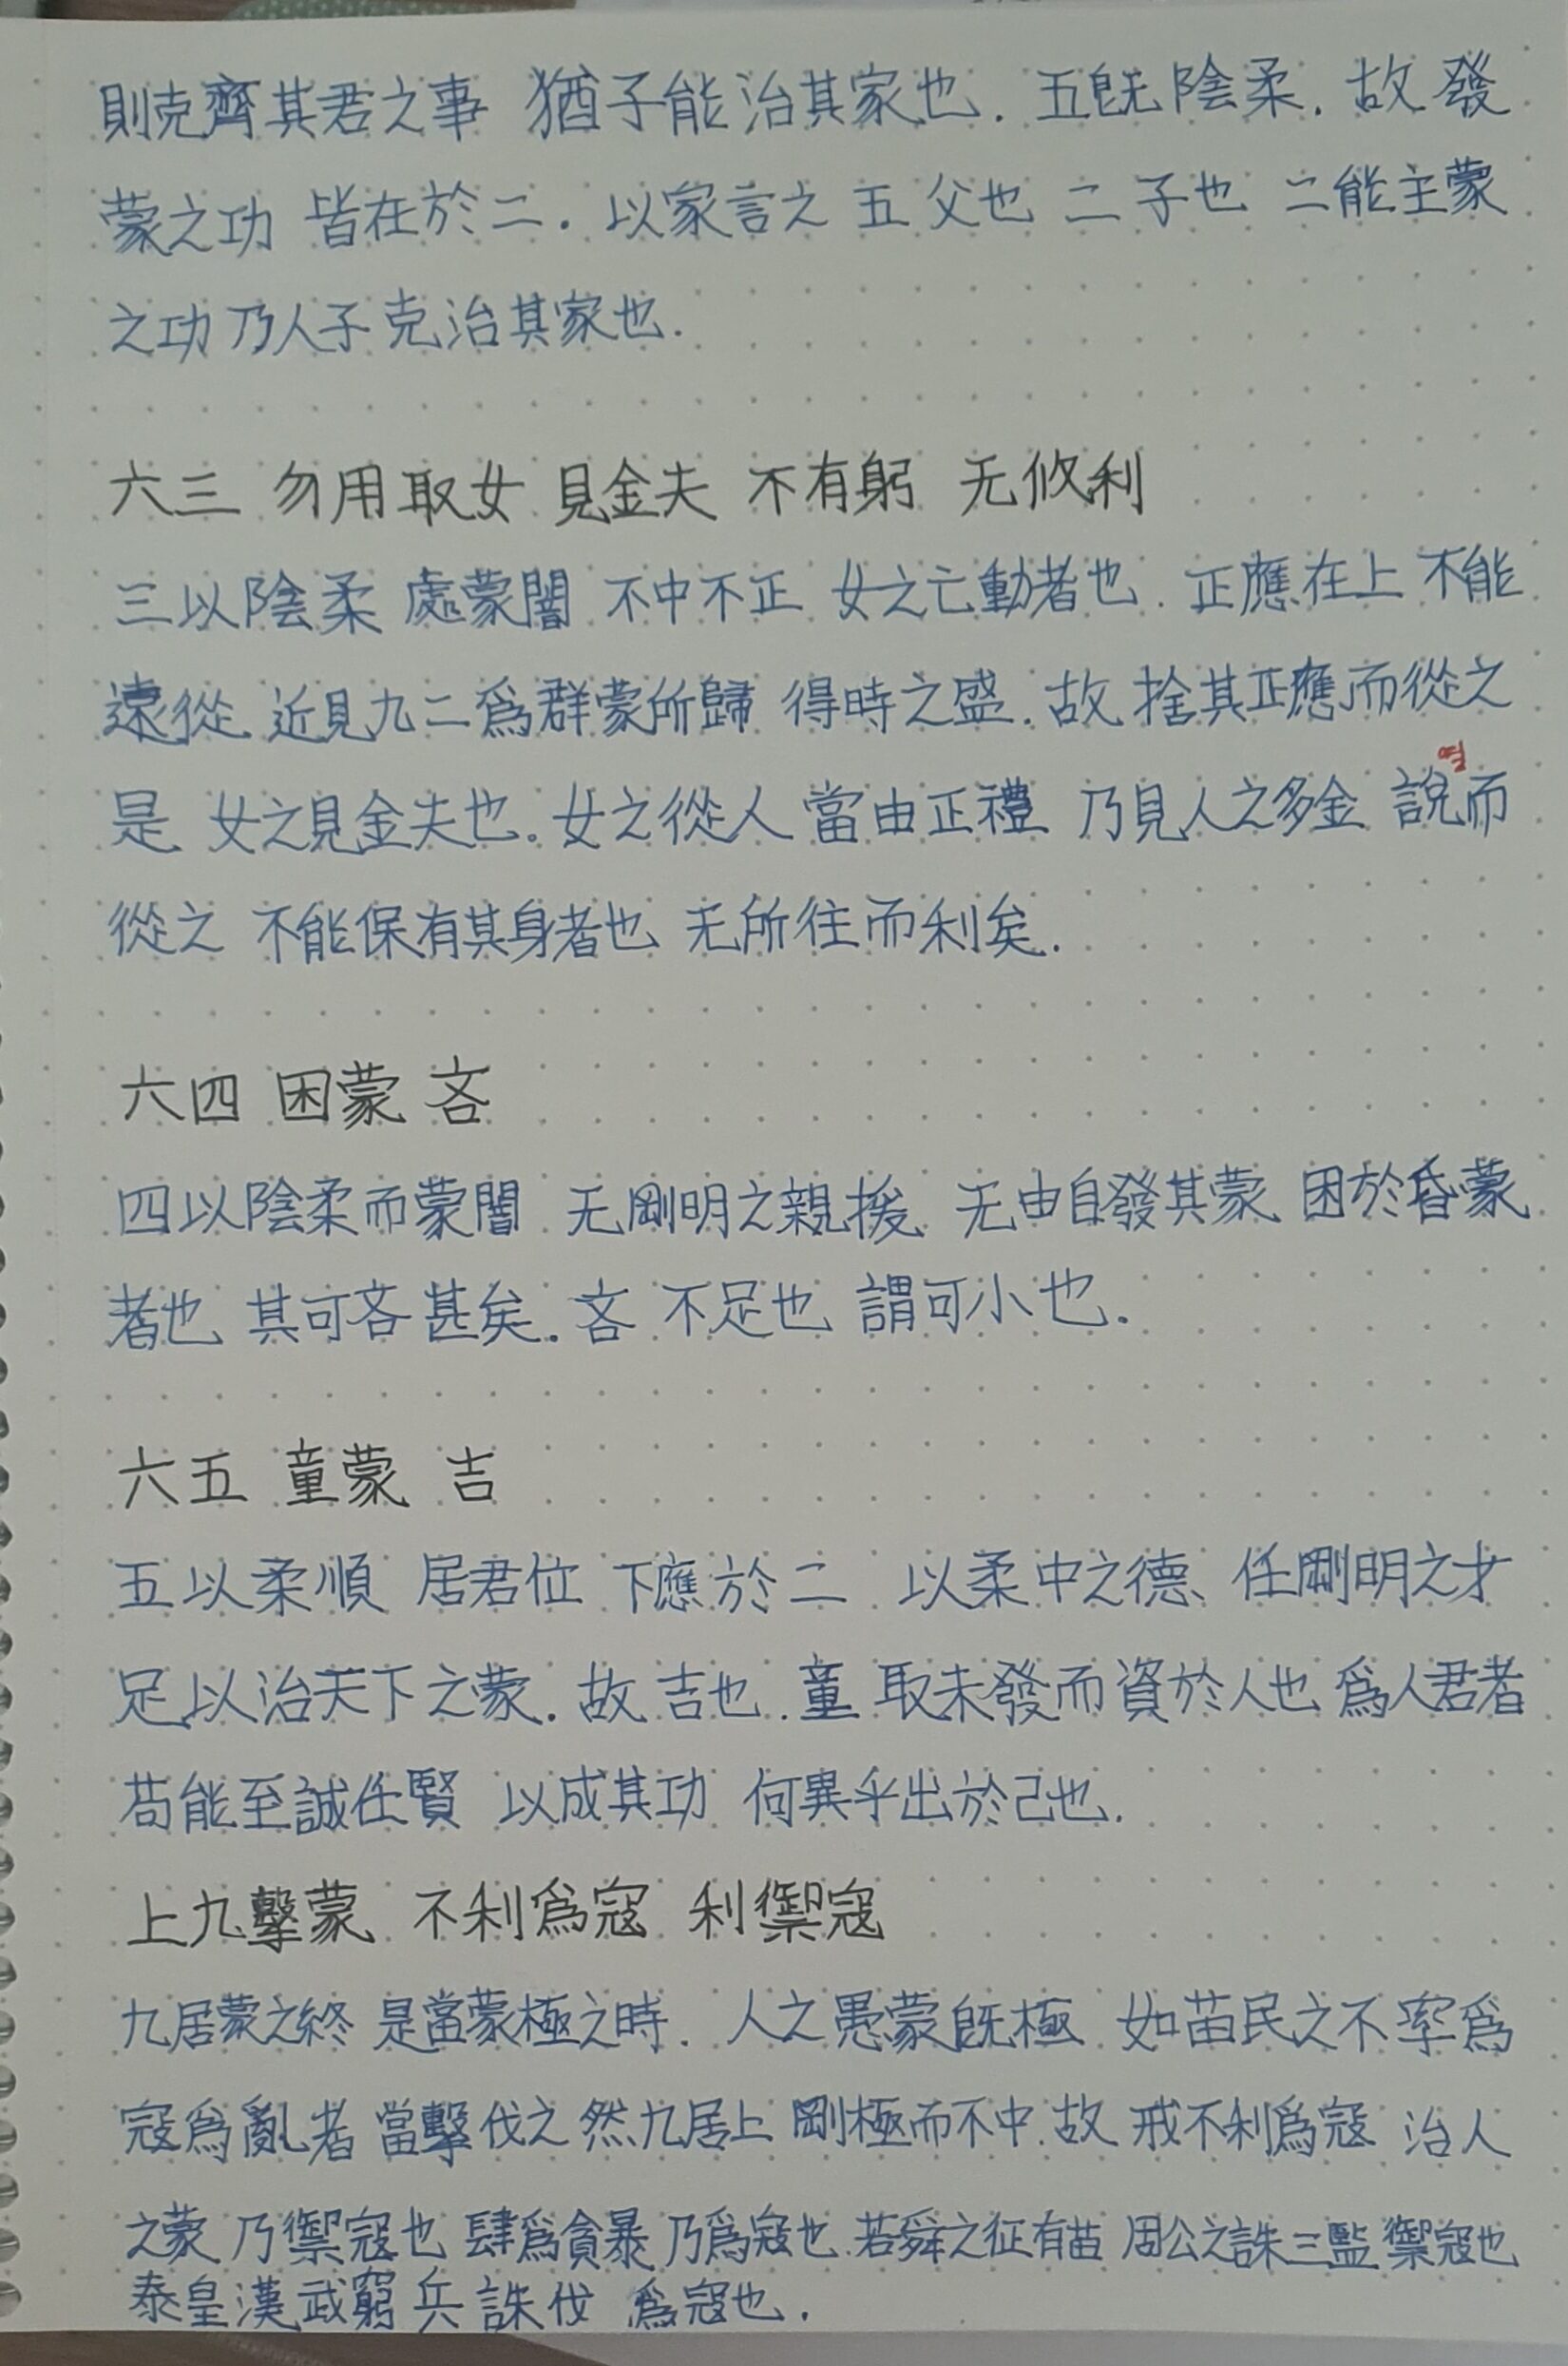 則克齊其君之事 猶子能治其家也. 五旣陰柔. 故 發
蒙之功 皆在於二. 以家言之 五 父也 二 子也 二能主蒙
之功 乃人子 克治其家也.
六三 勿用取女 見金夫 不有躬 无攸利
三以陰柔 處蒙闇 不中不正 女之亡動者也. 正應在上 不能
遠從 近見九二爲群蒙所歸 得時之盛. 故 捨其正應而從之
是 女之見金夫也. 女之從人 當由正禮 乃見人之多金 說而
열
從之 不能保有其身者也 无所往而利矣.
六四 困蒙 吝
四以陰柔而蒙闇 无剛明之親援 无由自發其蒙 困於昏蒙
者也 其可吝甚矣. 吝 不足也 謂可小也.
六五 童蒙 吉
五以柔順 居君位 下應於二 以柔中之德 任剛明之才
足以治天下之蒙. 故 吉也. 童 取未發而資於人也 爲人君者
苟能至誠任賢 以成其功 何異乎出於己也.
上九 擊蒙 不利爲寇 利禦寇
九居蒙之終 是當蒙極之時. 人之愚蒙旣極 如苗民之不率爲
寇爲亂者 當擊伐之 然九居上 剛極而不中 故 戒不利爲寇 治人
之蒙 乃禦寇也 肆爲貪暴 乃爲寇也. 若舜之征有苗 周公之誅三監 禦寇也
秦皇漢武窮兵誅伐 爲寇也.